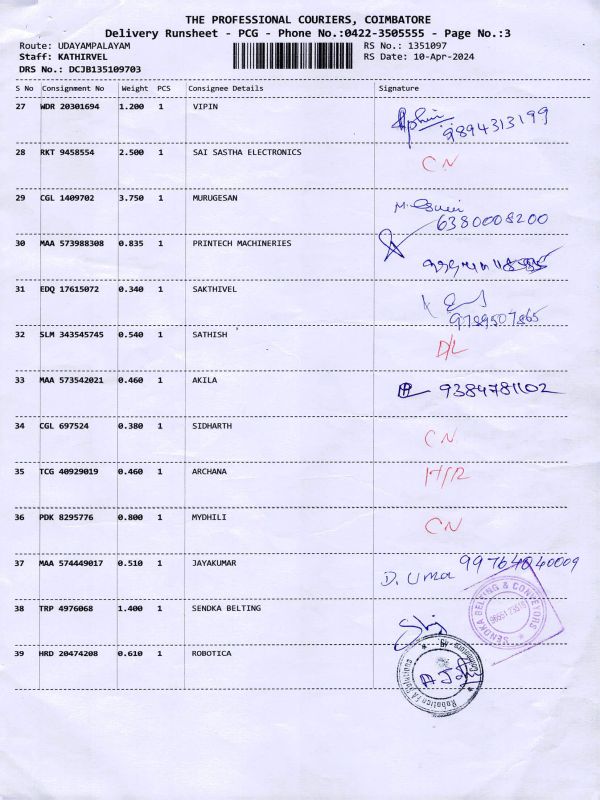 THE PROFESSIONAL COURIERS, COIMBATORE
Delivery Runsheet - PCG - Phone No.:0422-3505555 - Page No.:3
Route: UDAYAMPALAYAM RS No.: 1351097
Staff: KATHIRVEL RS Date: 10-Apr-2024
DRS No.: DCJB135109703
S No Consignment No Weight PCS Consignee Details Signature
27 WDR 20301694 1.200 1 VIPIN
9894313199
28 RKT 9458554 2.500 1 SAI SASTHA ELECTRONICS CN
29 CGL 1409702 3.750 1 MURUGESAN
6380008200
30 MAA 573988308 0.835 1 PRINTECH MACHINERIES
31 EDQ 17615072 0.340 1 SAKTHIVEL
9789507865
32 SLM 343545745 0.540 1 SATHISH D/L
33 MAA 573542021 0.460 1 AKILA 9384781102
34 CGL 697524 0.380 1 SIDHARTH CN
35 TCG 40929019 0.460 1 ARCHANA
36 PDK 8295776 0.800 1 MYDHILI CN
37 MAA 574449017 0.510 1 JAYAKUMAR D. Uma
38 TRP 4976068 1.400 1 SENDKA BELTING
SENDKA BELTING & CONVEYORS
39 HRD 20474208 0.610 1 ROBOTICA